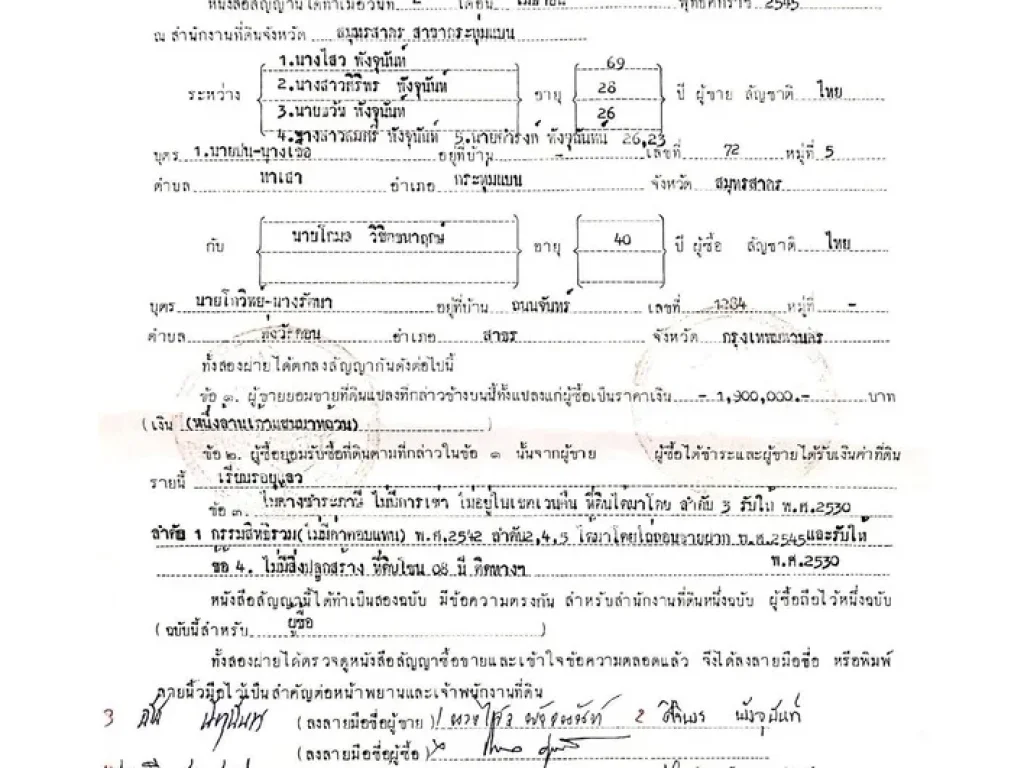 หนังสือสัญญานี้ได้ทำเมื่อวันที่ 2 เดือน เมษายน พุทธศักราช 2545
ณ สำนักงานที่ดินจังหวัด สมุทรสาคร สาขากระทุ่มแบน
1.นางไสว พังจุนันท์ 69
ระหว่าง 2.นางสาวศิริพร พังจุนันท์ อายุ 28 ปี ผู้ขาย สัญชาติ ไทย
3.นายธวัช พังจุนันท์ 26
4.นางสาวสมศรี พังจุนันท์ 5.นายดำรงค์ พังจุนันท์ 26,23
บุตร 1.นายปน-นางเชื้อ อยู่ที่บ้าน - เลขที่ 72 หมู่ที่ 5
ตำบล ท่าเสา อำเภอ กระทุ่มแบน จังหวัด สมุทรสาคร
กับ นายโกมล อายุ 40 ปี ผู้ซื้อ สัญชาติ ไทย
บุตร นายโกวิทย์-นางรัตนา อยู่ที่บ้าน ถนนจันทร์ เลขที่ 1284 หมู่ที่ -
ตำบล ทุ่งวัดดอน อำเภอ สาธร จังหวัด กรุงเทพมหานคร
ทั้งสองฝ่ายได้ตกลงสัญญากันดังต่อไปนี้
ข้อ ๑. ผู้ขายยอมขายที่ดินแปลงที่กล่าวข้างบนนี้ทั้งแปลงแก่ผู้ซื้อเป็นราคาเงิน - 1,900,000.- บาท
(เงิน (หนึ่งล้านเก้าแสนบาทถ้วน) )
ข้อ ๒. ผู้ซื้อยอมรับซื้อที่ดินตามที่กล่าวในข้อ ๑ นั้นจากผู้ขาย ผู้ซื้อได้ชำระและผู้ขายได้รับเงินค่าที่ดิน
รายนี้ เรียบร้อยแล้ว
ข้อ ๓. ไม่ค้างชำระภาษี ไม่มีการเช่า ไม่อยู่ในเขตเวนคืน ที่ดินได้มาโดย ลำดับ 3 รับให้ พ.ศ.2530
ลำดับ 1 กรรมสิทธิ์รวม(ไม่มีค่าตอบแทน) พ.ศ.2542 ลำดับ2,4,5 ได้มาโดยไถ่ถอนขายฝาก พ.ศ.2545และรับให้
ข้อ 4. ไม่มีสิ่งปลูกสร้าง ที่ดินโซน 08 มี ติดทางฯ พ.ศ.2530
หนังสือสัญญานี้ได้ทำเป็นสองฉบับ มีข้อความตรงกัน สำหรับสำนักงานที่ดินหนึ่งฉบับ ผู้ซื้อถือไว้หนึ่งฉบับ
(ฉบับนี้สำหรับ ผู้ซื้อ )
ทั้งสองฝ่ายได้ตรวจดูหนังสือสัญญาซื้อขายและเข้าใจข้อความตลอดแล้ว จึงได้ลงลายมือชื่อ หรือพิมพ์
ลายนิ้วมือไว้เป็นสำคัญต่อหน้าพยานและเจ้าพนักงานที่ดิน
3 (ลงลายมือชื่อผู้ขาย) 1 นางไสว 2 ศิริพร พังจุนันท์
(ลงลายมือชื่อผู้ซื้อ)